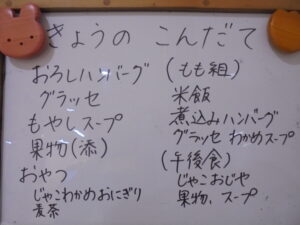 きょうの こんだて
おろしハンバーグ
グラッセ
もやしスープ
果物(添)
おやつ
じゃこわかめおにぎり
麦茶
(もも組)
米飯
煮込みハンバーグ
グラッセ わかめスープ
(午後食)
じゃこおじや
果物、スープ